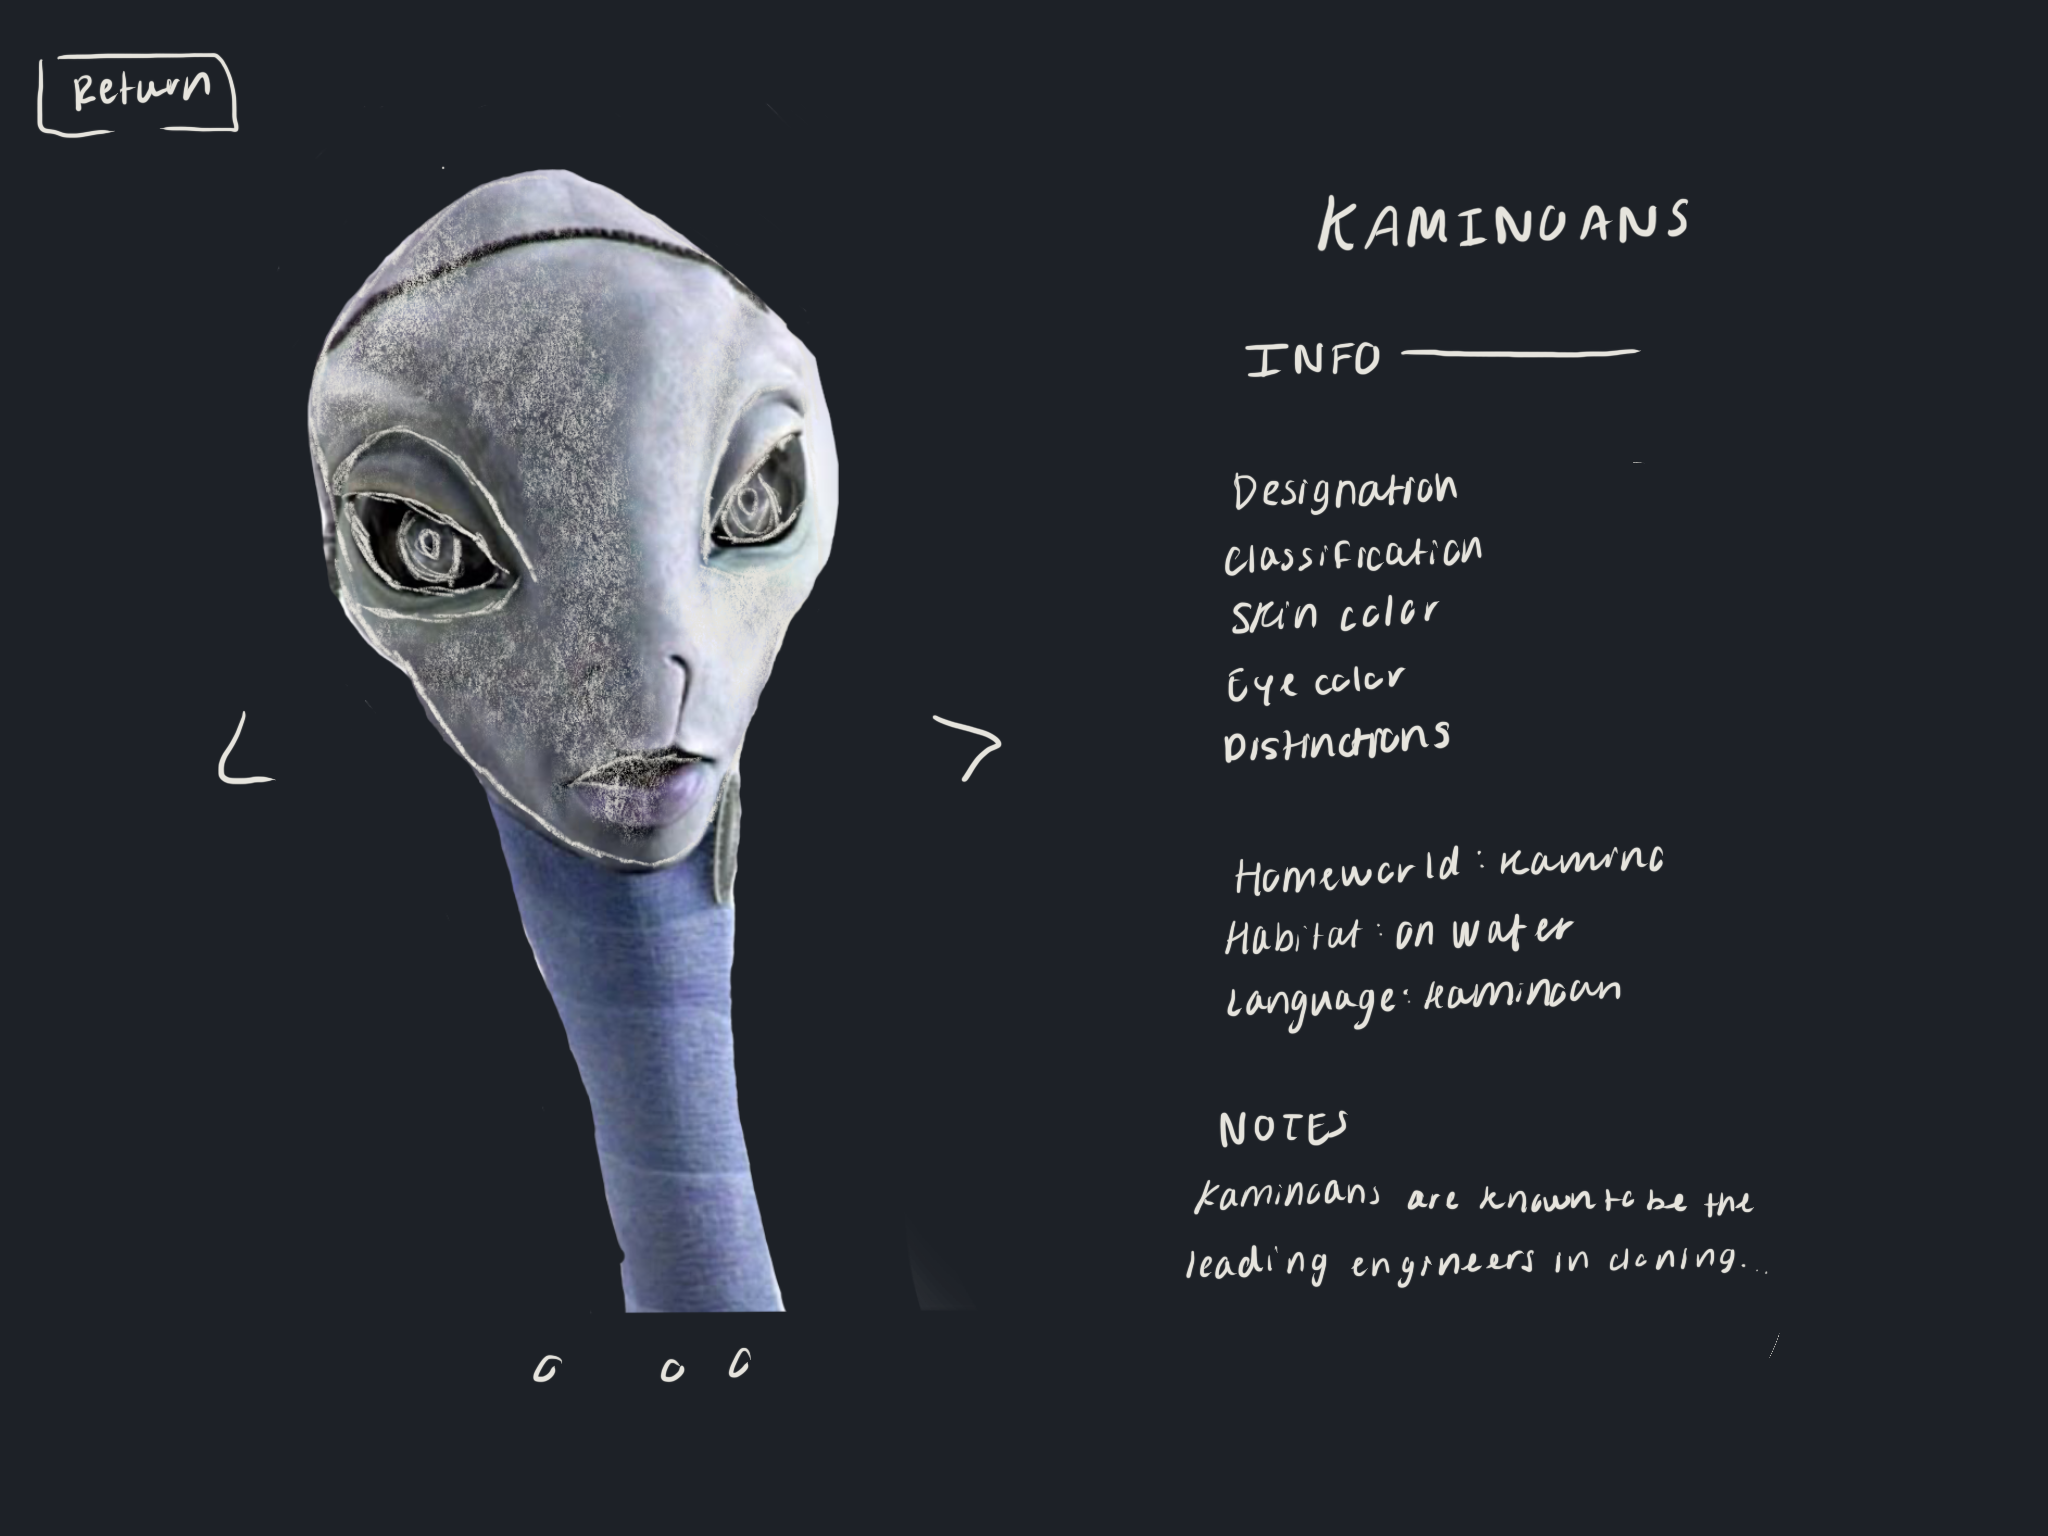 Return
KAMINOANS
INFO
Designation
Classification
Skin color
Eye color
Distinctions
Homeworld: Kamino
Habitat: on water
Language: Kaminoan
NOTES
Kaminoans are known to be the
leading engineers in cloning...